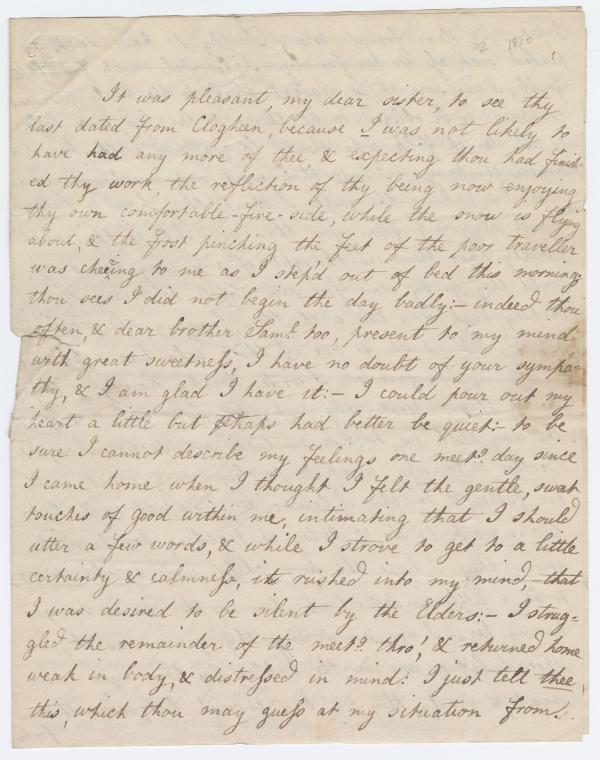 2 1810
It was pleasant, my dear sister, to see thy
last dated from Clogheen, because I was not likely to
have had any more of thee, & expecting thou had finish-
ed thy work, the reflection of thy being now enjoying
thy own comfortable-fire-side, while the snow is flying
about, & the frost pinching the feet of the poor traveller
was cheering to me as I step'd out of bed this morning;
thou sees I did not begin the day badly:- indeed thou
often, & dear brother Saml. too, present to my mind
with great sweetness, I have no doubt of your sympa-
thy, & I am glad I have it:- I could pour out my
heart a little but perhaps had better be quiet:- to be
sure I cannot describe my feelings one meetg. day since
I came home when I thought I felt the gentle, sweet
touches of good within me, intimating that I should
utter a few words, & while I strove to get to a little
certainty & calmness, it rushed into my mind,-that
I was desired to be silent by the Elders:- I strug-
gled the remainder of the meetg. thro', & returned home
weak in body, & distressed in mind: I just tell thee
this, which thou may guess at my situation from.